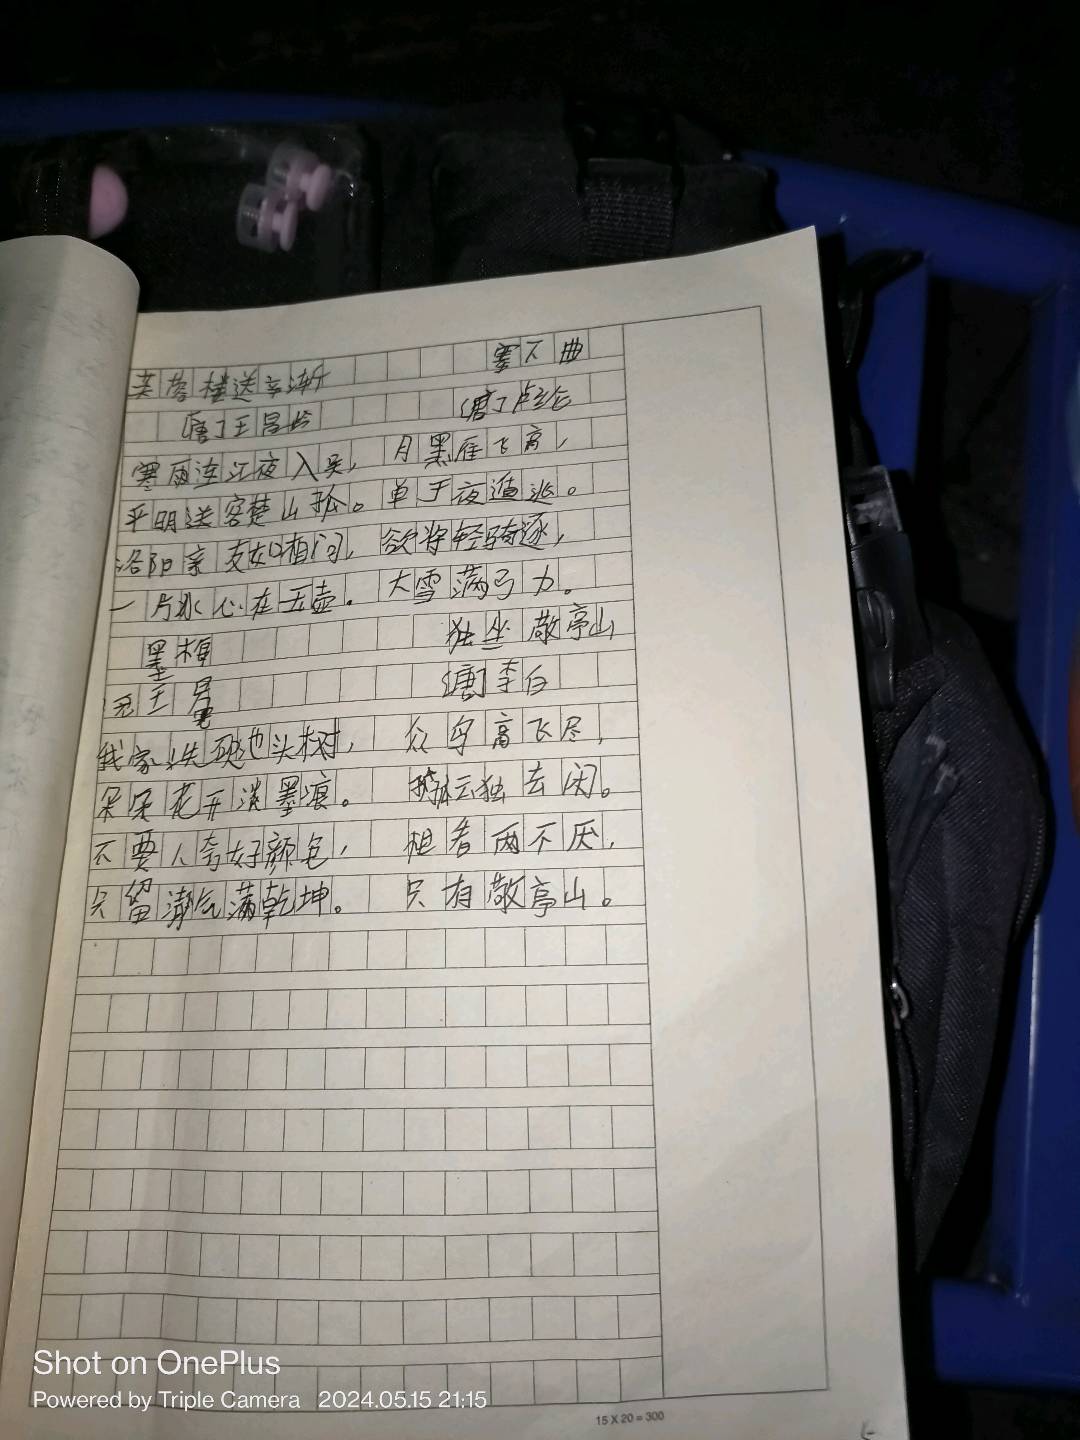 芙蓉楼送辛渐
[唐]王昌龄
寒雨连江夜入吴,
平明送客楚山孤。
洛阳亲友如相问,
一片冰心在玉壶。
墨梅
元 王冕
我家洗砚池头树,
朵朵花开淡墨痕。
不要人夸好颜色,
只留清气满乾坤。
塞下曲
[唐]卢纶
月黑雁飞高,
单于夜遁逃。
欲将轻骑逐,
大雪满弓刀。
独坐敬亭山
[唐]李白
众鸟高飞尽,
孤云独去闲。
相看两不厌,
只有敬亭山。
15 X 20 = 300
Shot on OnePlus
Powered by Triple Camera 2024.05.15 21:15